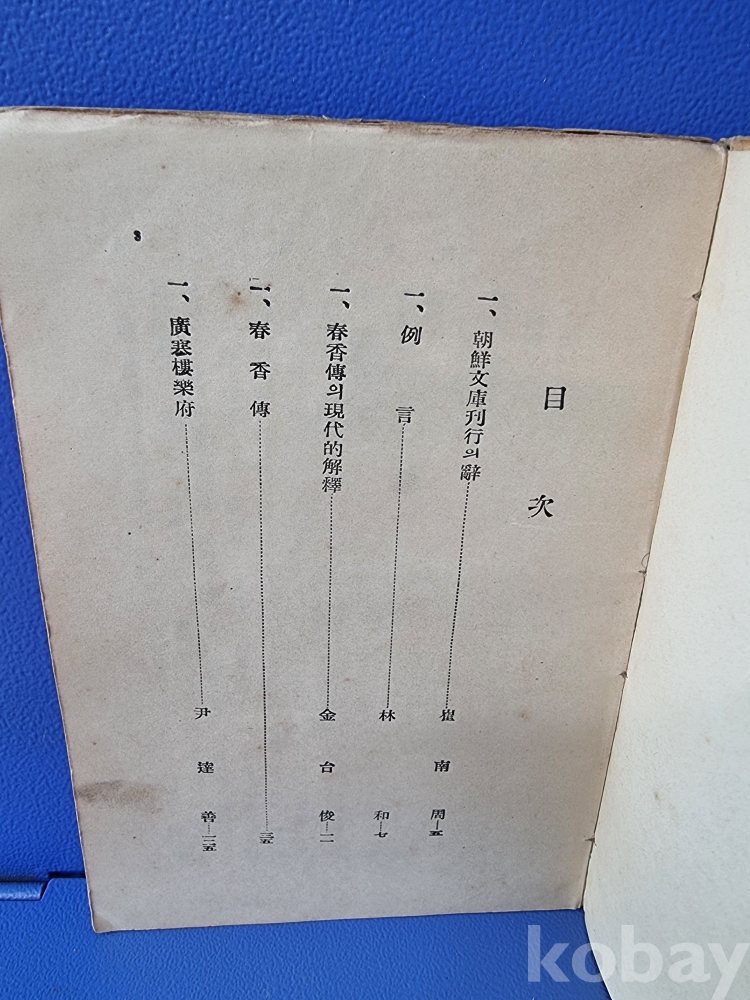 目次
一、朝鮮文庫刊行의辭 崔南周 五
一、例言 林和 七
一、春香傳의現代的解釋 金台俊 一一
一、春香傳 三五
一、廣寒樓樂府 尹達善 一二五
kobay